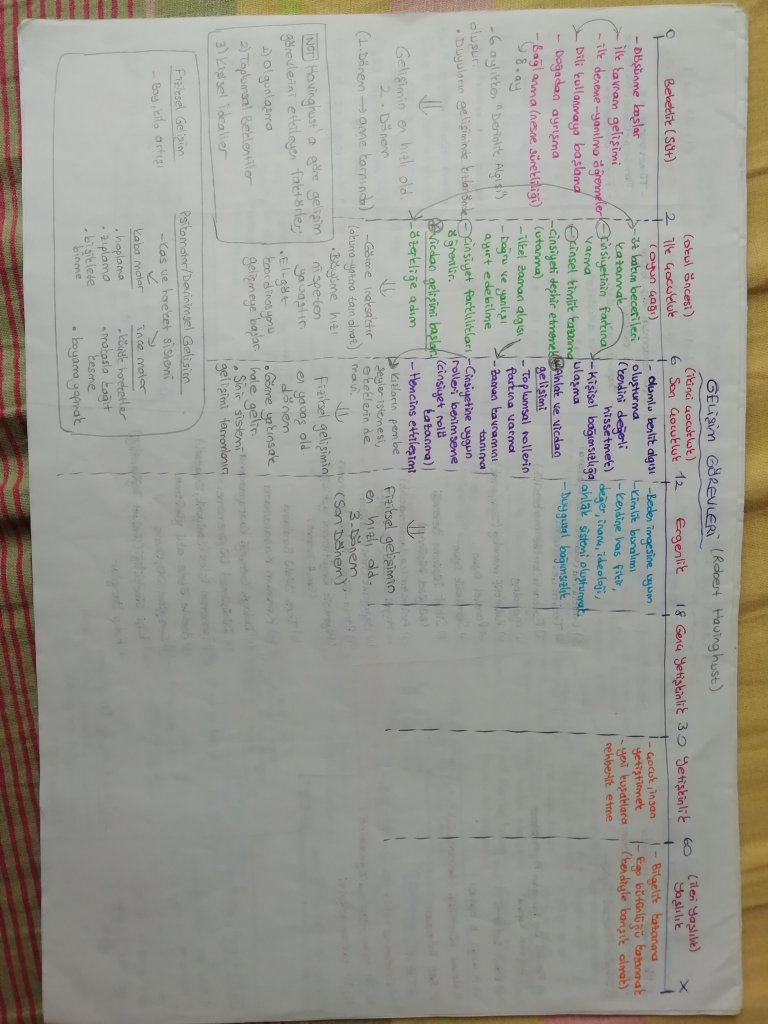 GELİŞİM GÖREVLERİ (Robert Havinghust)
0
Bebeklik (Süt)
2
(okul öncesi)
(oyun çağı)
İlk Çocukluk
6
(ikinci çocukluk)
Son Çocukluk
12
Ergenlik
18
Genç Yetişkinlik
30
Yetişkinlik
60
(ileri yaşlılık)
Yaşlılık
X
- Düşünme başlar
- İlk kavram gelişimi
- İlk deneme-yanılma öğrenmeler
- Dili kullanmaya başlama
- Doğadan ayrışma
- Bağlanma (nesne sürekliliği)
8. ay
- 6 aylıkken "Derinlik Algısı"
oluşur.
• Duyuların gelişiminde
Gelişimin en hızlı old.
2. Dönem
(1. Dönem → anne karnında)
- Öz bakım becerileri
kazanmak
- Cinsiyetinin farkına
varma
- Cinsel kimlik kazanma
- Cinsiyeti teşhir etmemek
(utanma)
- İlkel zaman algısı
- Doğru ve yanlışı
ayırt edebilme
- Cinsiyet farklılıkları
öğrenilir.
Vicdan gelişimi başlar.
- Özerkliğe adım
- Görme ıraksaktır
• Büyüme hızı
nispeten
yavaştır.
• El-göz
koordinasyonu
gelişmeye başlar.
- Olumlu benlik algısı
oluşturma
(kendini değerli
hissetmek)
- Kişisel bağımsızlığa
ulaşma
Ahlak ve vicdan
gelişimi
- Toplumsal rollerin
farkına varma
- Zaman kavramını
tanıma
- Cinsiyetine uygun
rolleri benimseme
(cinsiyet rolü
kazanma)
- Hemcins etkileşimi
Kızların pembe
şeyler istemesi,
erkeklerin de
mavi.
Fiziksel gelişimin
en yavaş old.
dönem
• Görme yakınsak
hale gelir.
• Sinir sistemi
gelişimi tamamlanır.
- Beden imgesine uyum
- Kimlik bunalımı
- Kendine has fikir,
değer, inanç, ideoloji,
ahlak sistemi oluşturmak
- Duygusal bağımsızlık
Fiziksel gelişimin
en hızlı old.
3. Dönem
(Son Dönem)
- Çocuk, insan
yetiştirmek
- yeni kuşaklara
rehberlik etme
- Bilgelik kazanma
- Ego bütünlüğü kazanmak
(kendiyle barışık olmak)
NOT Havinghust'a göre gelişim
görevlerini etkileyen faktörler;
1) Olgunlaşma
2) Toplumsal Beklentiler
3) Kişisel idealler
Fiziksel Gelişim
- Boy, kilo artışı
Psikomotor/Devinimsel Gelişim
- Kas ve hareket sistemi
kaba motor
• hoplama
• zıplama
• bisiklete
binme
ince motor
küçük hareketler
• makasla kağıt
kesme
• boyama yapmak